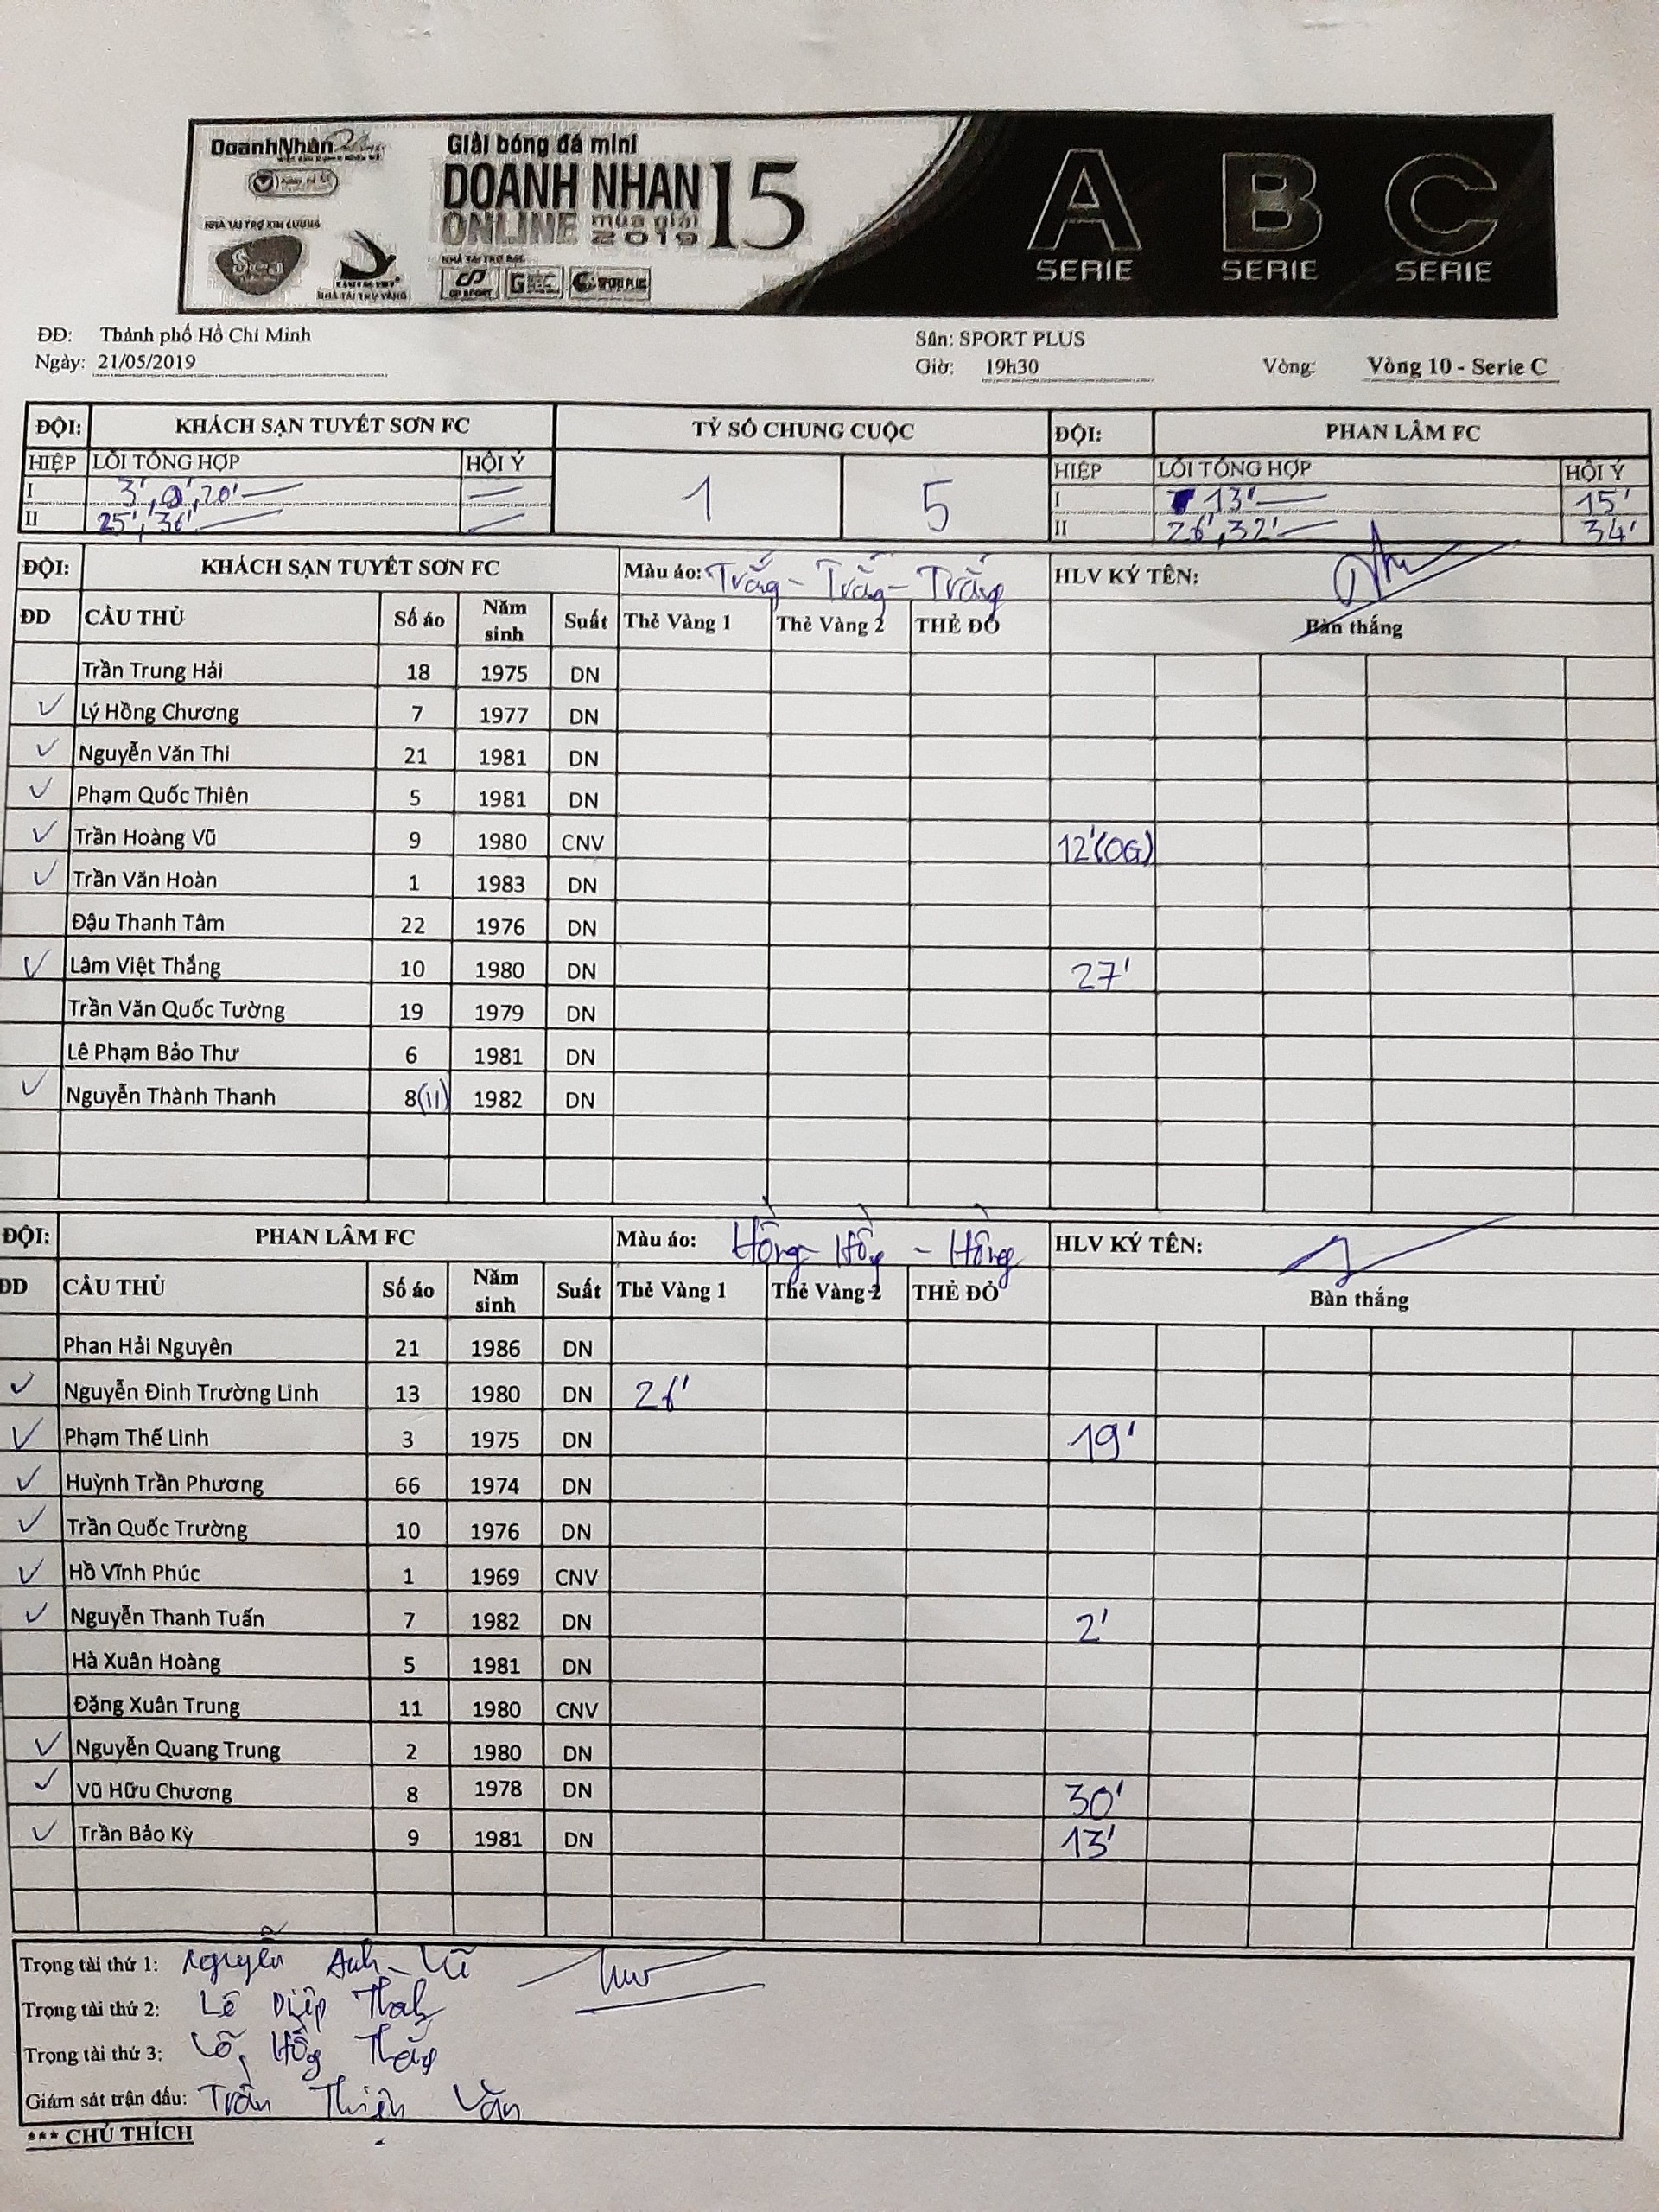 DoanhNhân
Giải bóng đá mini
DOANH NHAN 15
ONLINE mùa giải 2019
NHÀ TÀI TRỢ KIM CƯƠNG
Sea
NHÀ TÀI TRỢ VÀNG
NHÀ TÀI TRỢ BẠC
CP SPORT
SPORT PLUS
A SERIE B SERIE C SERIE
ĐĐ: Thành phố Hồ Chí Minh Sân: SPORT PLUS
Ngày: 21/05/2019 Giờ: 19h30 Vòng: Vòng 10 - Serie C
ĐỘI: KHÁCH SẠN TUYẾT SƠN FC TỶ SỐ CHUNG CUỘC ĐỘI: PHAN LÂM FC
HIỆP LỖI TỔNG HỢP HỘI Ý 1 5 HIỆP LỖI TỔNG HỢP HỘI Ý
I 3', 20' I 13' 15'
II 25', 36' II 26', 32' 34'
ĐỘI: KHÁCH SẠN TUYẾT SƠN FC Màu áo: Trắng - Trắng - Trắng HLV KÝ TÊN:
ĐD CẦU THỦ Số áo Năm sinh Suất Thẻ Vàng 1 Thẻ Vàng 2 THẺ ĐỎ Bàn thắng
Trần Trung Hải 18 1975 DN
✓ Lý Hồng Chương 7 1977 DN
✓ Nguyễn Văn Thi 21 1981 DN
✓ Phạm Quốc Thiên 5 1981 DN
✓ Trần Hoàng Vũ 9 1980 CNV 12'(OG)
✓ Trần Văn Hoàn 1 1983 DN
Đậu Thanh Tâm 22 1976 DN
✓ Lâm Việt Thắng 10 1980 DN 27'
Trần Văn Quốc Tường 19 1979 DN
Lê Phạm Bảo Thư 6 1981 DN
✓ Nguyễn Thành Thanh 8(11) 1982 DN
ĐỘI: PHAN LÂM FC Màu áo: Hồng - Hồng - Hồng HLV KÝ TÊN:
ĐD CẦU THỦ Số áo Năm sinh Suất Thẻ Vàng 1 Thẻ Vàng 2 THẺ ĐỎ Bàn thắng
Phan Hải Nguyên 21 1986 DN
✓ Nguyễn Đình Trường Linh 13 1980 DN 26'
✓ Phạm Thế Linh 3 1975 DN 19'
✓ Huỳnh Trần Phương 66 1974 DN
✓ Trần Quốc Trường 10 1976 DN
✓ Hồ Vĩnh Phúc 1 1969 CNV
✓ Nguyễn Thanh Tuấn 7 1982 DN 2'
Hà Xuân Hoàng 5 1981 DN
Đặng Xuân Trung 11 1980 CNV
✓ Nguyễn Quang Trung 2 1980 DN
✓ Vũ Hữu Chương 8 1978 DN 30'
✓ Trần Bảo Kỳ 9 1981 DN 13'
Trọng tài thứ 1: Nguyễn Anh Vũ
Trọng tài thứ 2: Lê Diệp
Trọng tài thứ 3: Võ Hồng Thắng
Giám sát trận đấu: Trần Thiện Văn
*** CHÚ THÍCH